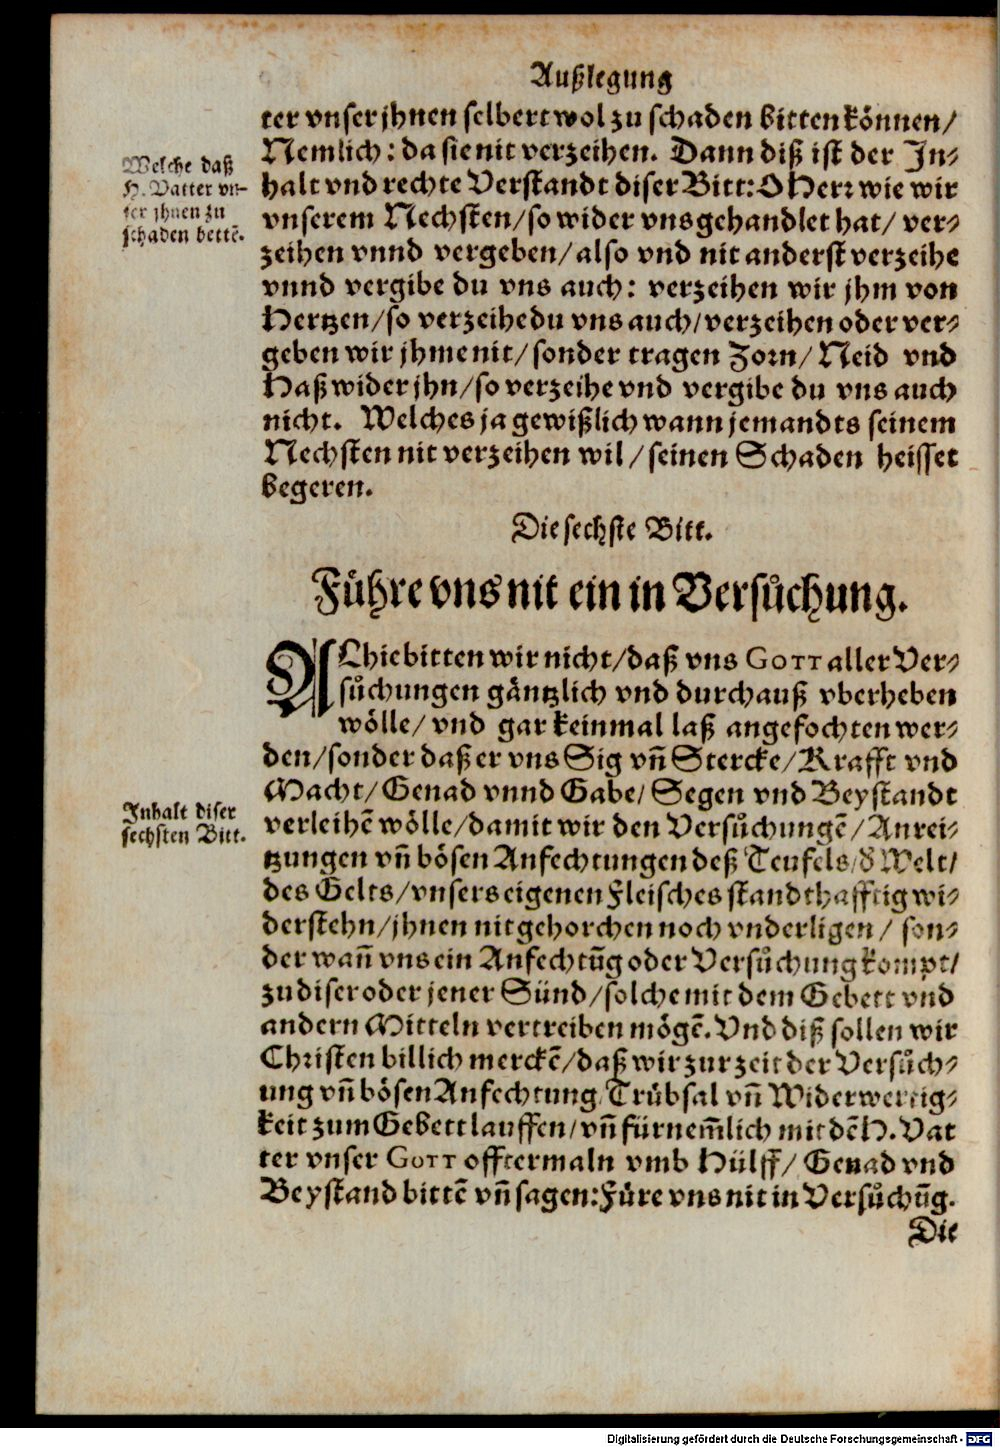 Außlegung
ter vnser jhnen selbert wol zu schaden bitten können/
Nemlich: da sie nit verzeihen. Dann diß ist der In-
halt vnd rechte Verstandt diser Bitt: O Herr wie wir
vnserem Nechsten/ so wider vns gehandlet hat/ ver-
zeihen vnnd vergeben/ also vnd nit anderst verzeihe
vnnd vergibe du vns auch: verzeihen wir jhm von
Hertzen/ so verzeihe du vns auch/ verzeihen oder ver-
geben wir jhme nit/ sonder tragen Zorn/ Neid vnd
Haß wider jhn/ so verzeihe vnd vergibe du vns auch
nicht. Welches ja gewißlich wann jemandts seinem
Nechsten nit verzeihen wil/ seinen Schaden heisset
begeren.
Welche daß
H. Vatter vn-
ser jhnen zu
schaden bettē.
Die sechste Bitt.
Führe vns nit ein in Versuͦchung.
ALhie bitten wir nicht/ daß vns GOTT aller Ver-
suͦchungen gäntzlich vnd durchauß vberheben
wölle/ vnd gar keinmal laß angefochten wer-
den/ sonder daß er vns Sig vñ Stercke/ Krafft vnd
Macht/ Genad vnnd Gabe/ Segen vnd Beystandt
verleihē wölle/ damit wir den Versuͦchungē/ Anrei-
tzungen vñ bösen Anfechtungen deß Teufels/ d' Welt/
des Gelts/ vnsers eigenen Fleisches standthafftig wi-
derstehn/ jhnen nit gehorchen noch vnderligen/ son-
der wañ vns ein Anfechtūg oder Versuͦchung kompt/
zu diser oder jener Sünd/ solche mit dem Gebett vnd
andern Mitteln vertreiben mögē. Vnd diß sollen wir
Christen billich merckē/ daß wir zur zeit der Versuͦch-
ung vñ bösen Anfechtung/ Trübsal vñ Widerwertig-
keit zum Gebett lauffen/ vñ fürnem̃lich mit dē H. Vat
ter vnser GOTT offtermaln vmb Hülff/ Genad vnd
Beystand bittē vñ sagen: Füre vns nit in Versuͦchūg.
Inhalt diser
sechsten Bitt.
Die
Digitalisierung gefördert durch die Deutsche Forschungsgemeinschaft - DFG